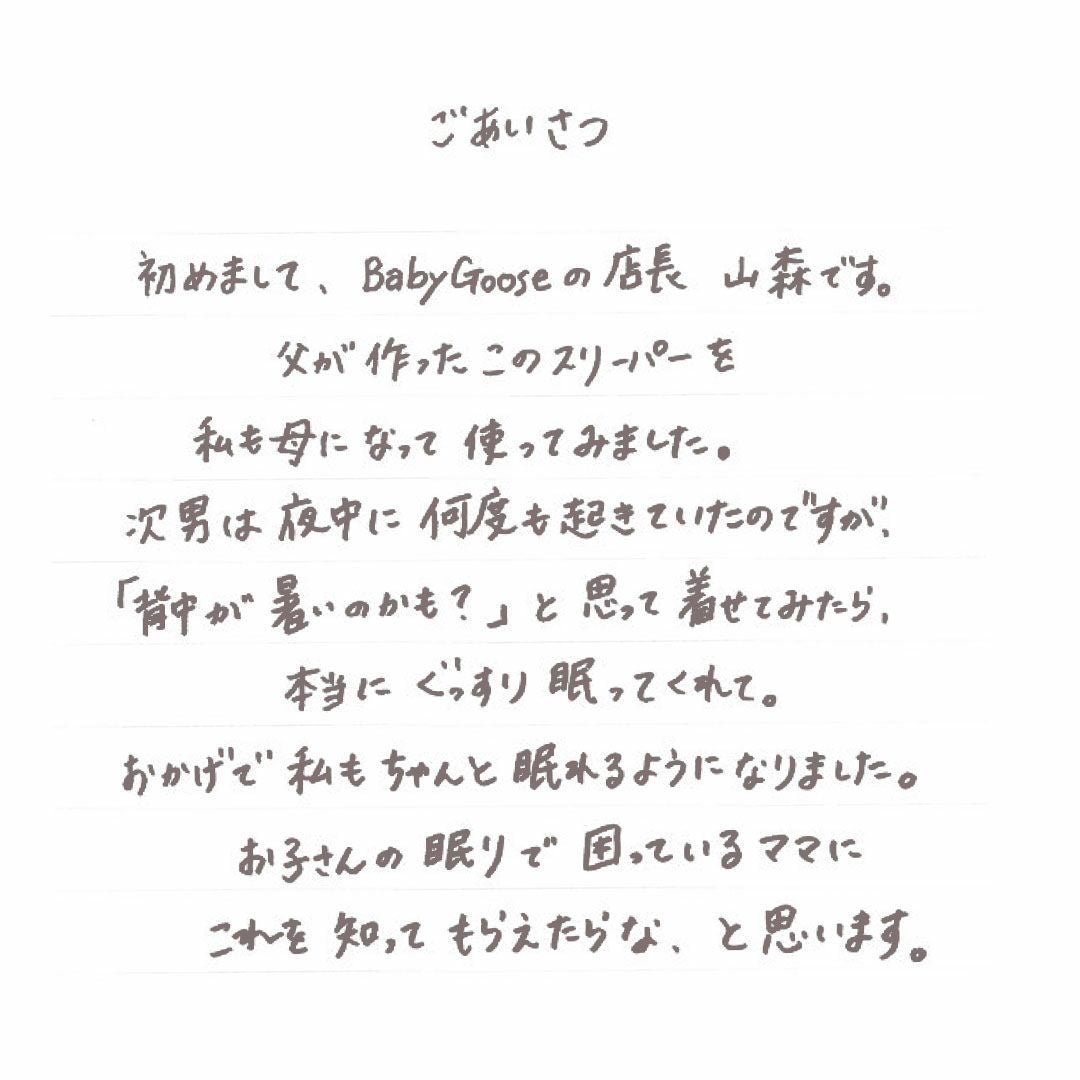 ごあいさつ
初めまして、BabyGooseの店長 山森です。
父が作ったこのスリーパーを
私も母になって使ってみました。
次男は夜中に何度も起きていたのですが、
「背中が暑いのかも?」と思って着せてみたら、
本当にぐっすり眠ってくれて。
おかげで私もちゃんと眠れるようになりました。
お子さんの眠りで困っているママに
これを知ってもらえたらな、と思います。